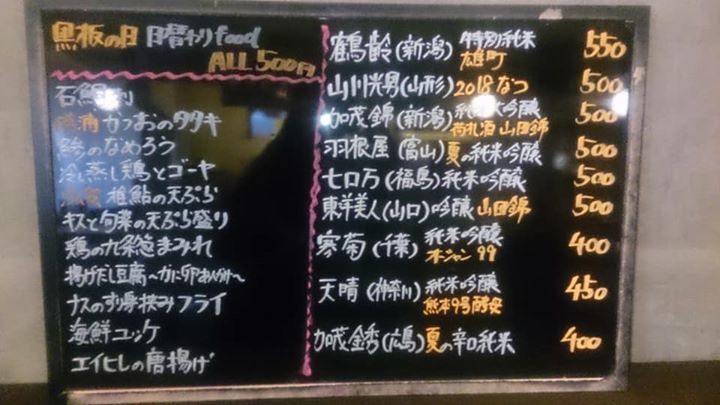 黒板の日 日替わりfood
ALL 500円
石鯛
かつおのタタキ
鯵のなめろう
冷し蒸し鶏とゴーヤ
稚鮎の天ぷら
キスと旬菜の天ぷら盛り
鶏の九条葱まみれ
揚げだし豆腐〜かに卯あんかけ〜
ナスのすり身挟みフライ
海鮮ユッケ
エイヒレの唐揚げ
鶴齢(新潟) 特別純米 雄町 550
山川光男(山形) 2018なつ 500
加茂錦(新潟) 純米大吟醸 荷札酒 山田錦 500
羽根屋(富山) 夏の純米吟醸 500
七ロ万(福島) 純米吟醸 500
東洋美人(山口) 吟醸 山田錦 500
寒菊(千葉) 純米吟醸 オーシャン99 400
天晴(神奈川) 純米吟醸 熊本9号酵母 450
加茂金秀(広島) 夏の辛口純米 400